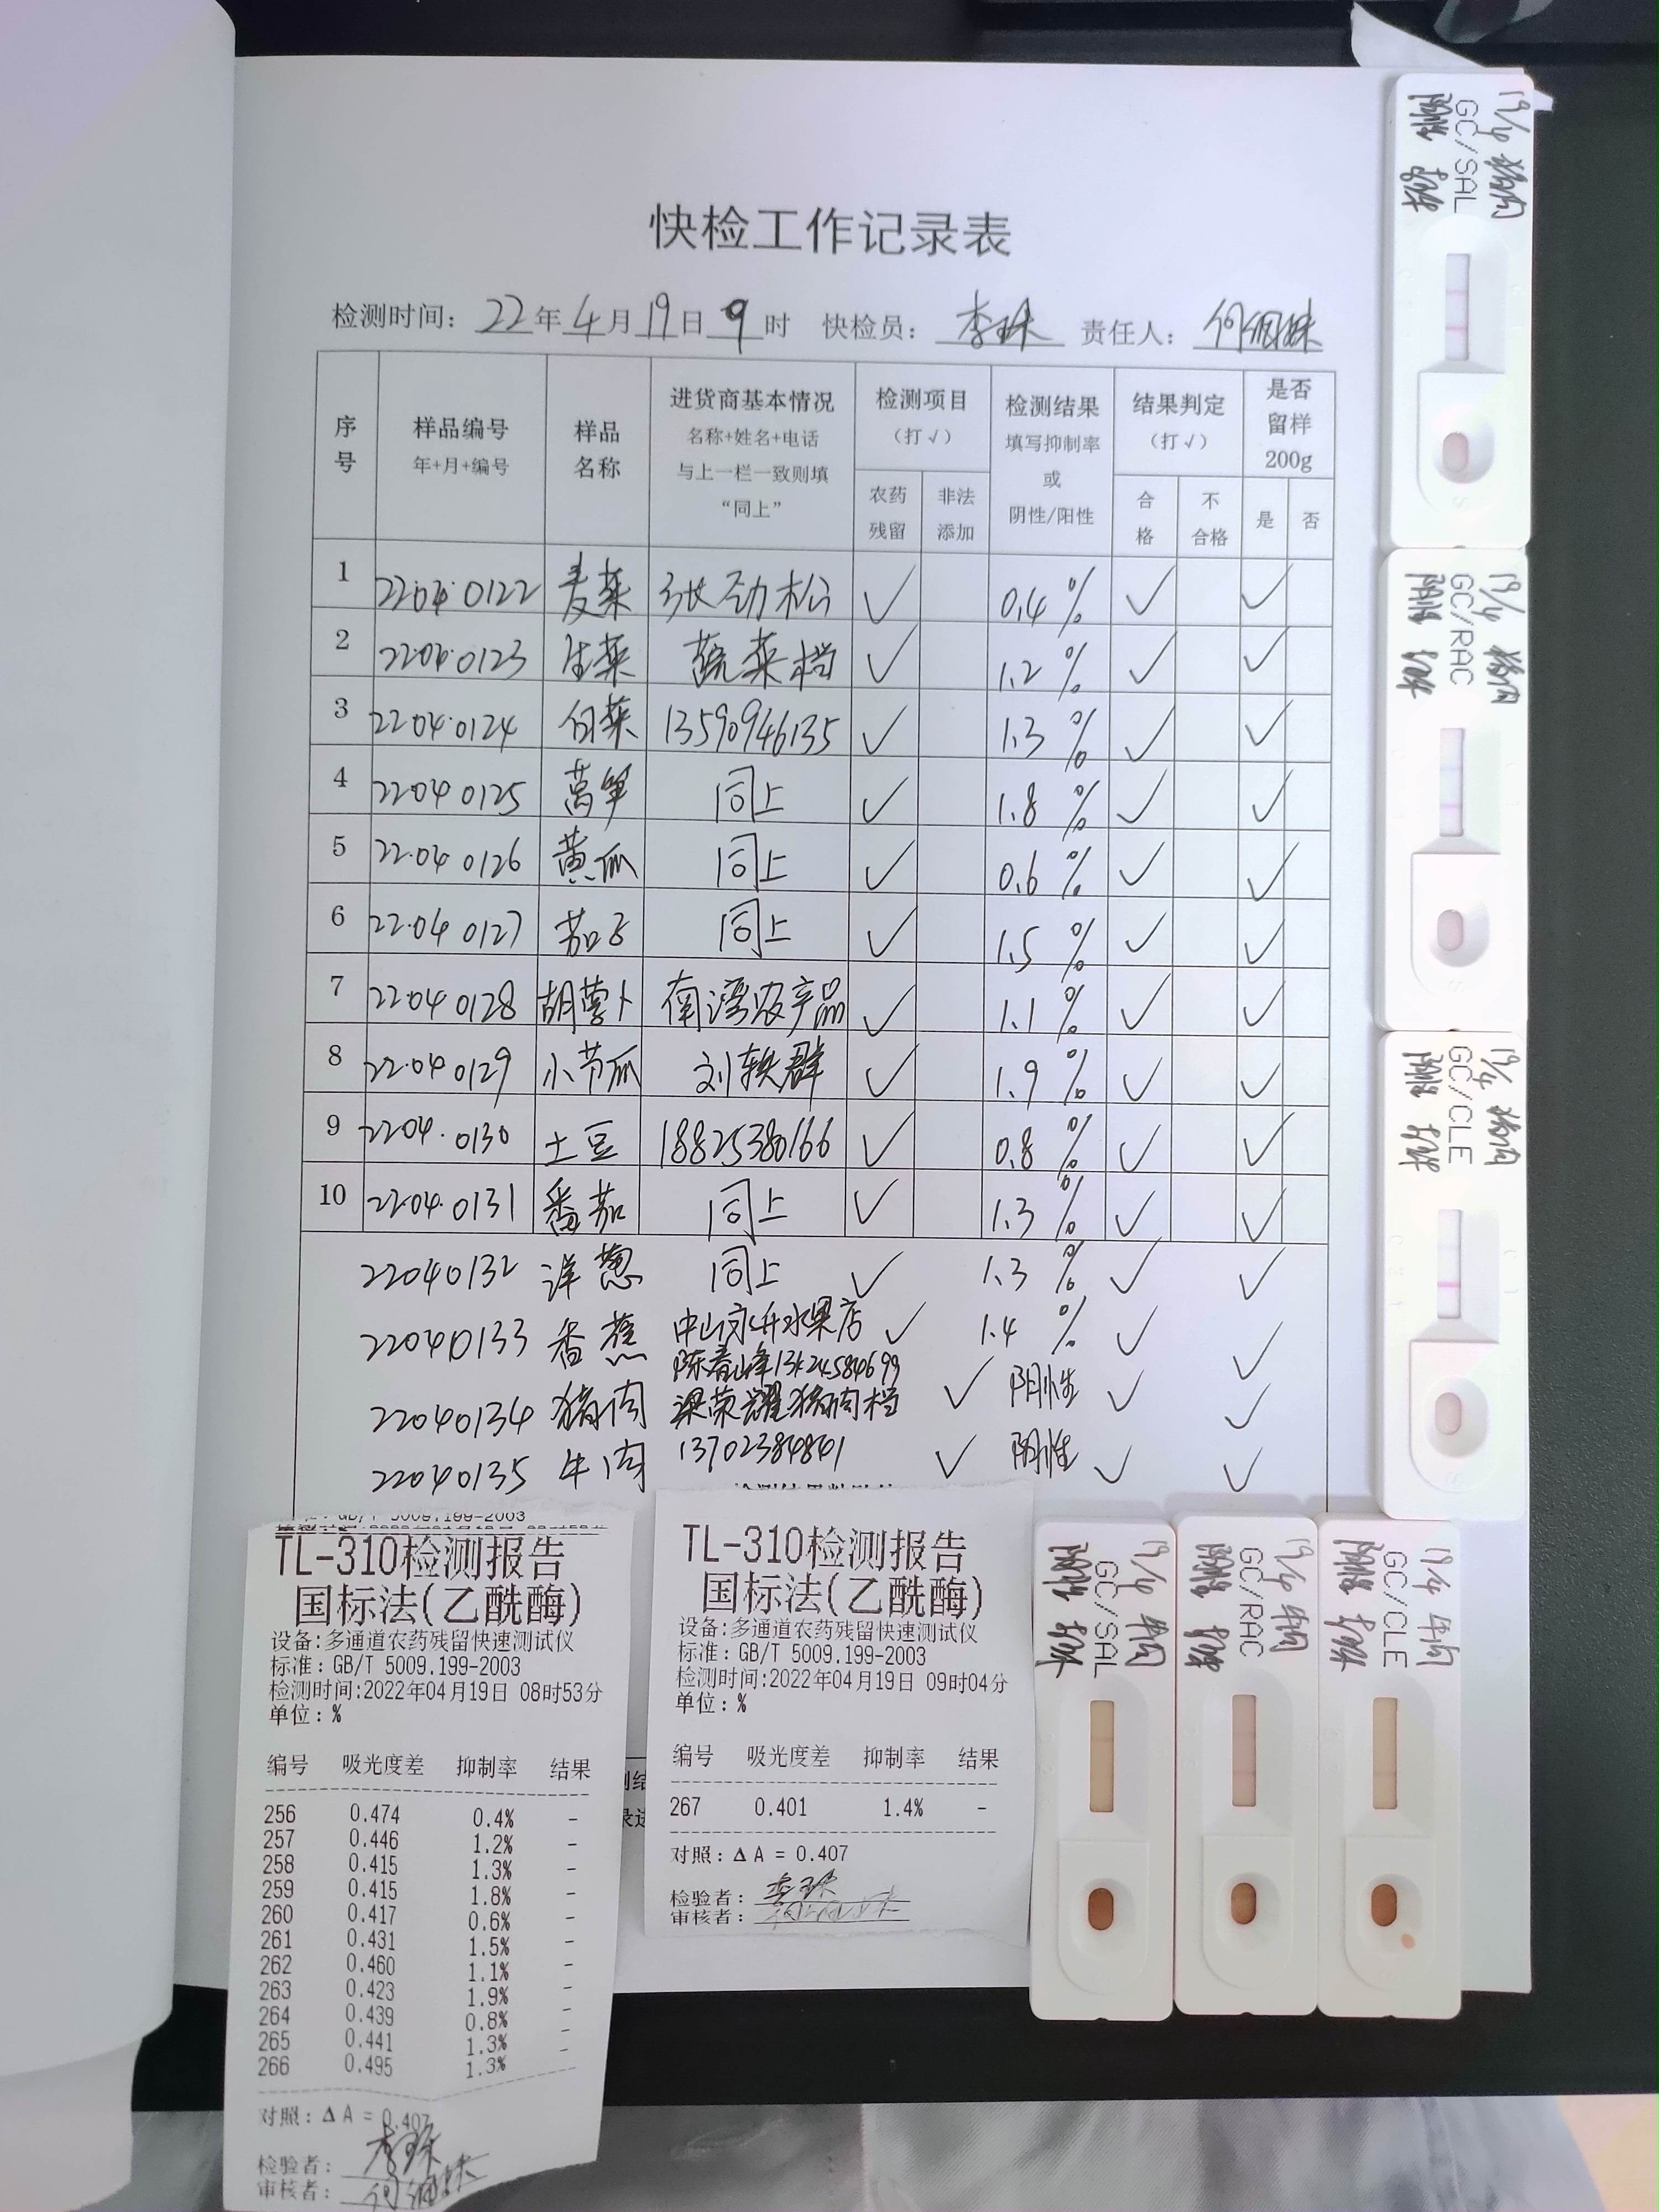 快检工作记录表
检测时间：22年4月19日9时 快检员：李珠 责任人：
序号 样品编号 年+月+编号 样品名称 进货商基本情况 名称+姓名+电话 与上一栏一致则填“同上” 检测项目（打√） 农药残留 非法添加 检测结果 填写抑制率或阴性/阳性 结果判定（打√） 合格 不合格 是否留样200g 是 否
1 22040122 麦菜 张劲松 √ 0.4% √ √
2 22040123 生菜 蔬菜档 √ 1.2% √ √
3 22040124 白菜 13590946135 √ 1.3% √ √
4 22040125 莴笋 同上 √ 1.8% √ √
5 22040126 黄瓜 同上 √ 0.6% √ √
6 22040127 茄子 同上 √ 1.5% √ √
7 22040128 胡萝卜 南湾农产品 √ 1.1% √ √
8 22040129 小节瓜 刘轶群 √ 1.9% √ √
9 2204.0130 土豆 18825380166 √ 0.8% √ √
10 2204.0131 番茄 同上 √ 1.3% √ √
22040132 洋葱 同上 √ 1.3% √ √
22040133 香蕉 中山永升水果店 √ 1.4% √ √
陈春峰
22040134 猪肉 梁荣耀猪肉档 √ 阴性 √ √
22040135 牛肉 13702384841 √ 阴性 √ √
TL-310检测报告
国标法(乙酰酶)
设备:多通道农药残留快速测试仪
标准：GB/T 5009.199-2003
检测时间:2022年04月19日 08时53分
单位：%
编号 吸光度差 抑制率 结果
256 0.474 0.4% -
257 0.446 1.2% -
258 0.415 1.3% -
259 0.415 1.8% -
260 0.417 0.6% -
261 0.431 1.5% -
262 0.460 1.1% -
263 0.423 1.9% -
264 0.439 0.8% -
265 0.441 1.3% -
266 0.495 1.3% -
对照：ΔA = 0.407
检验者：李珠
审核者：
TL-310检测报告
国标法(乙酰酶)
设备:多通道农药残留快速测试仪
标准：GB/T 5009.199-2003
检测时间:2022年04月19日 09时04分
单位：%
编号 吸光度差 抑制率 结果
267 0.401 1.4% -
对照：ΔA = 0.407
检验者：李珠
审核者：
19/4 猪肉
GC/SAL
阴性 李珠
19/4 猪肉
GC/RAC
阴性 李珠
19/4 猪肉
GC/CLE
阴性 李珠
19/4 牛肉
GC/SAL
阴性 李珠
19/4 牛肉
GC/RAC
阴性 李珠
19/4 牛肉
GC/CLE
阴性 李珠